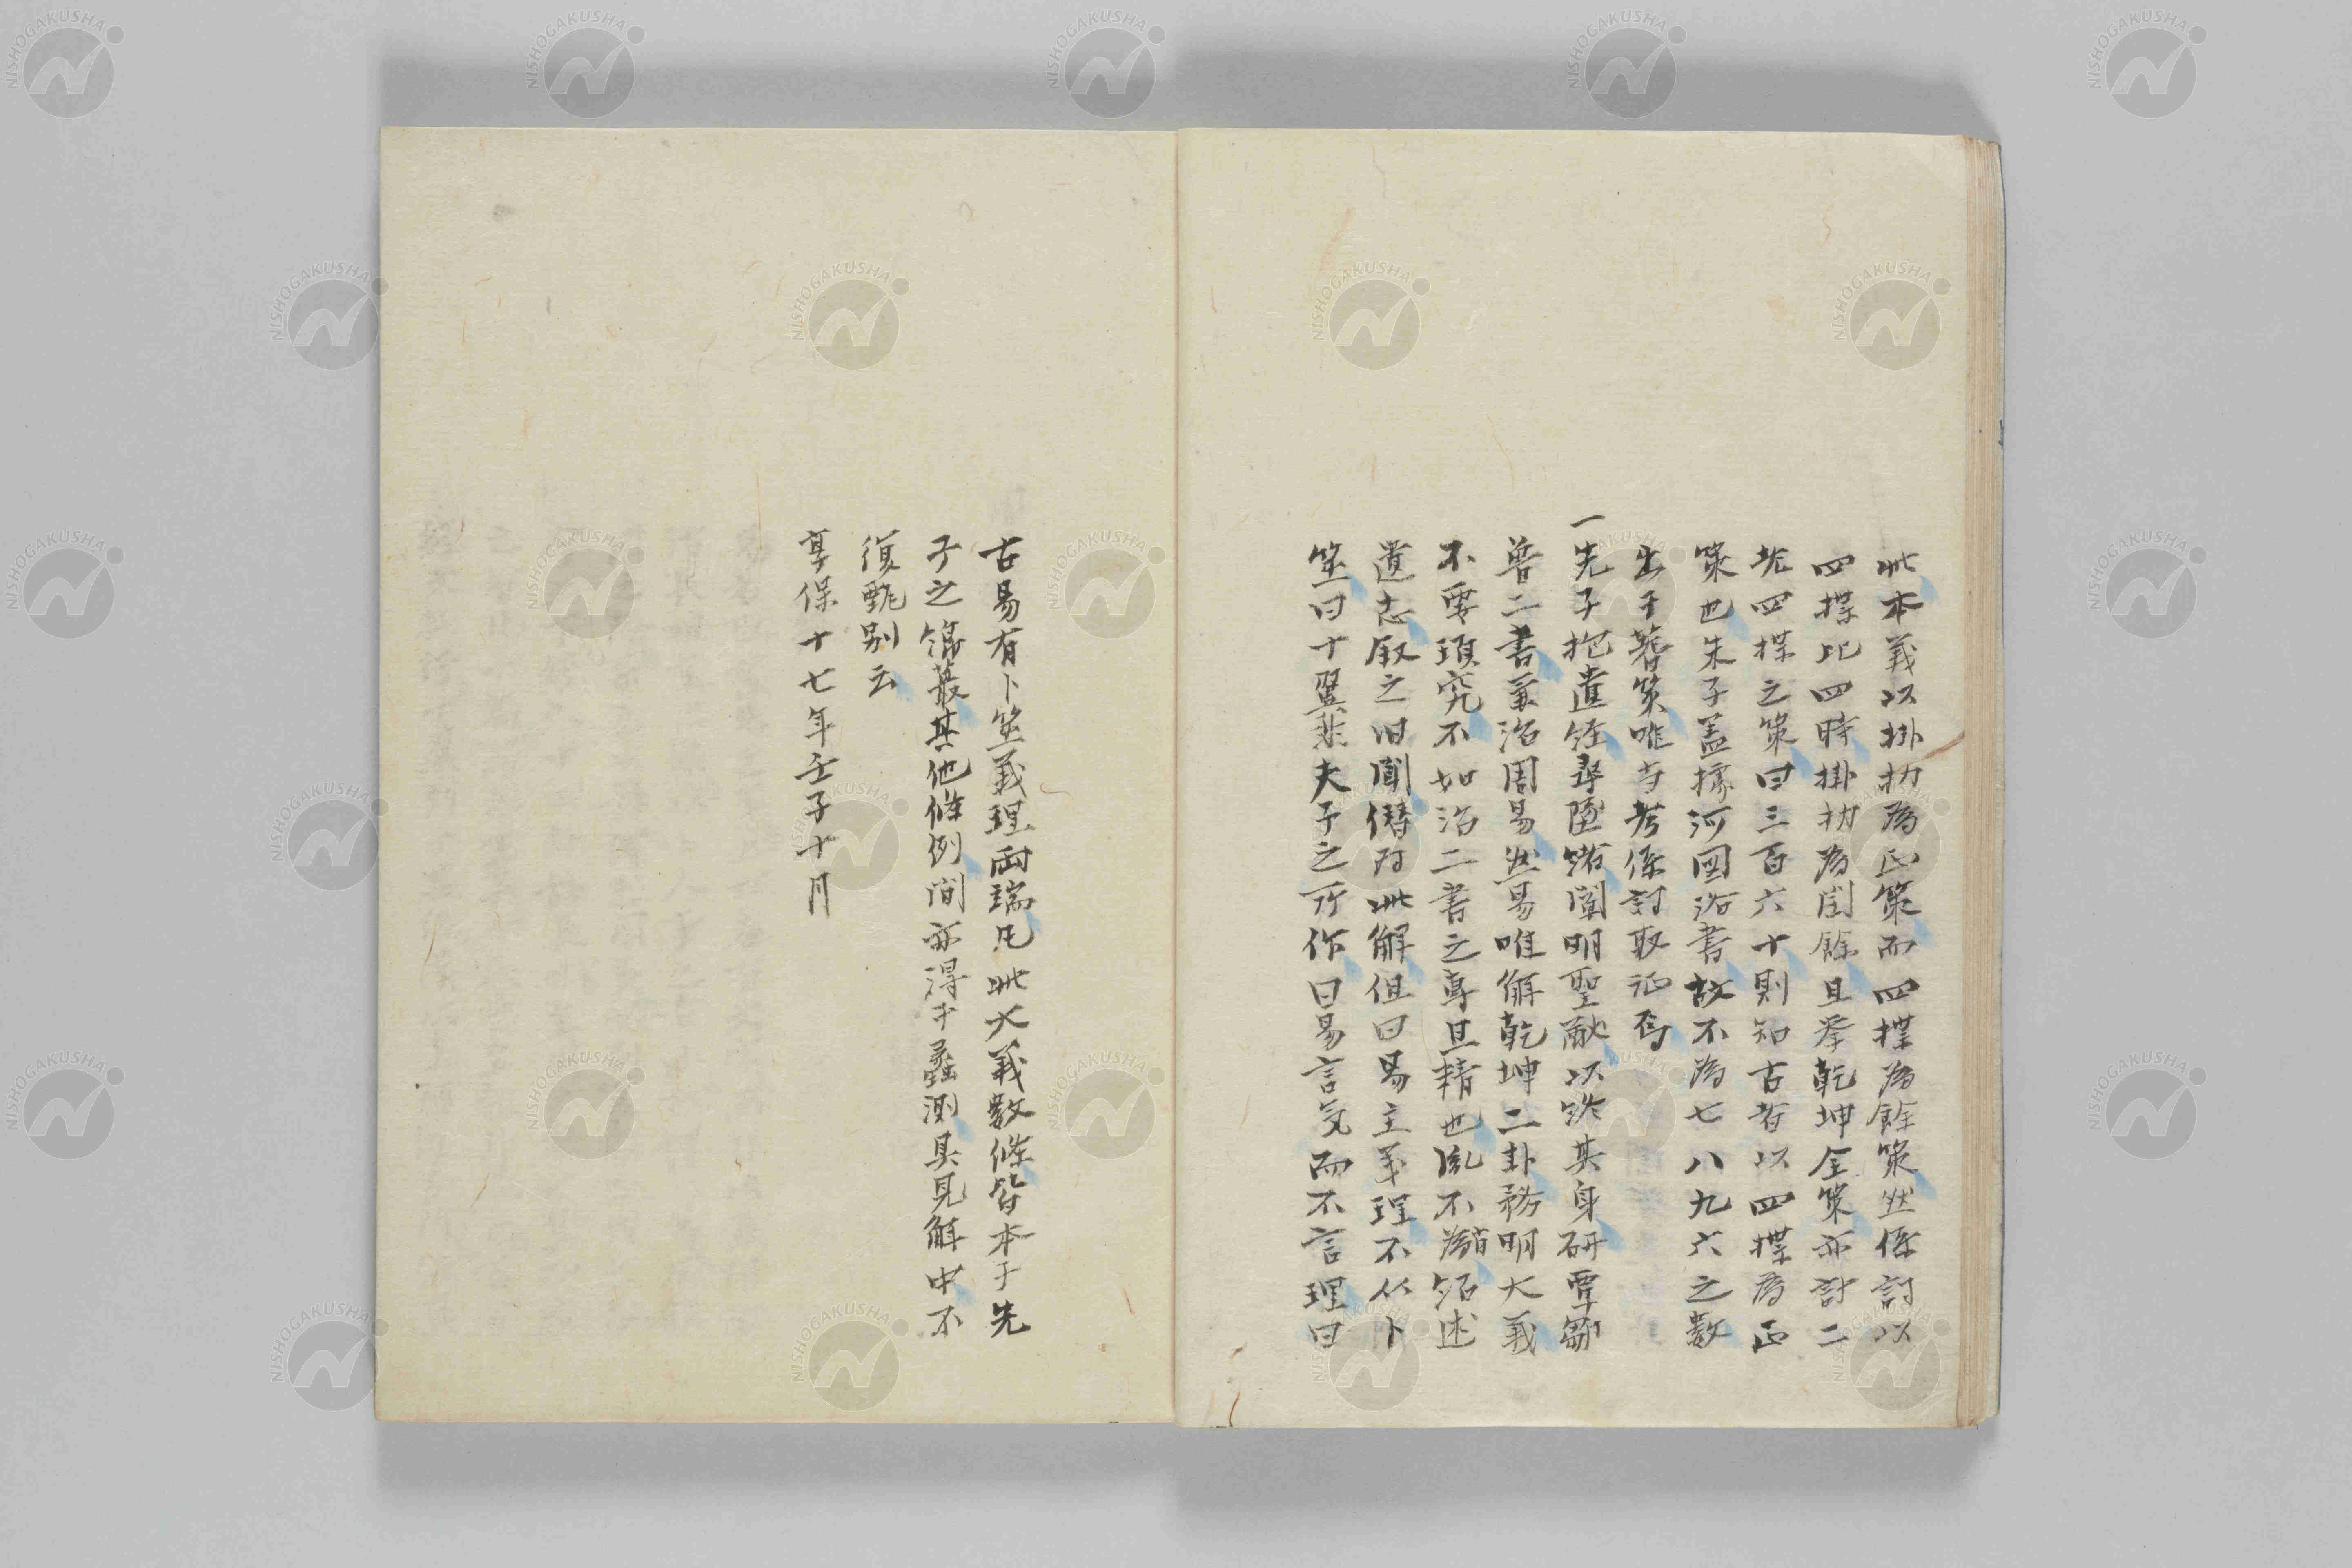 此本義以掛扐為正策而四揲為餘策然係訂以
四揲比四時掛扐為閏餘且挙乾坤全策亦計二
老四揲之策曰三百六十則知古者以四揲為正
策也朱子盖據河圖洛書故不為七八九六之数
出于蓍策唯与考係訂取泝焉
一先子抱遺経尋墜緒闡明聖猷以終其身研覃鄒
魯二書兼治周易然易唯解乾坤二卦務明大義
不要瑣究不如治二書之専且精也胤不肖為紹述
遺志叙之旧聞僭為此解但曰易主義理不从卜
筮曰十翼非夫子之所作曰易言気而不言理曰
古易有卜筮義理両端凡此大義数條皆本于先
子之 其他條例間亦得于蠡測具見解中不
復甄别云
享保十七年壬子十月
NISHOGAKUSHA